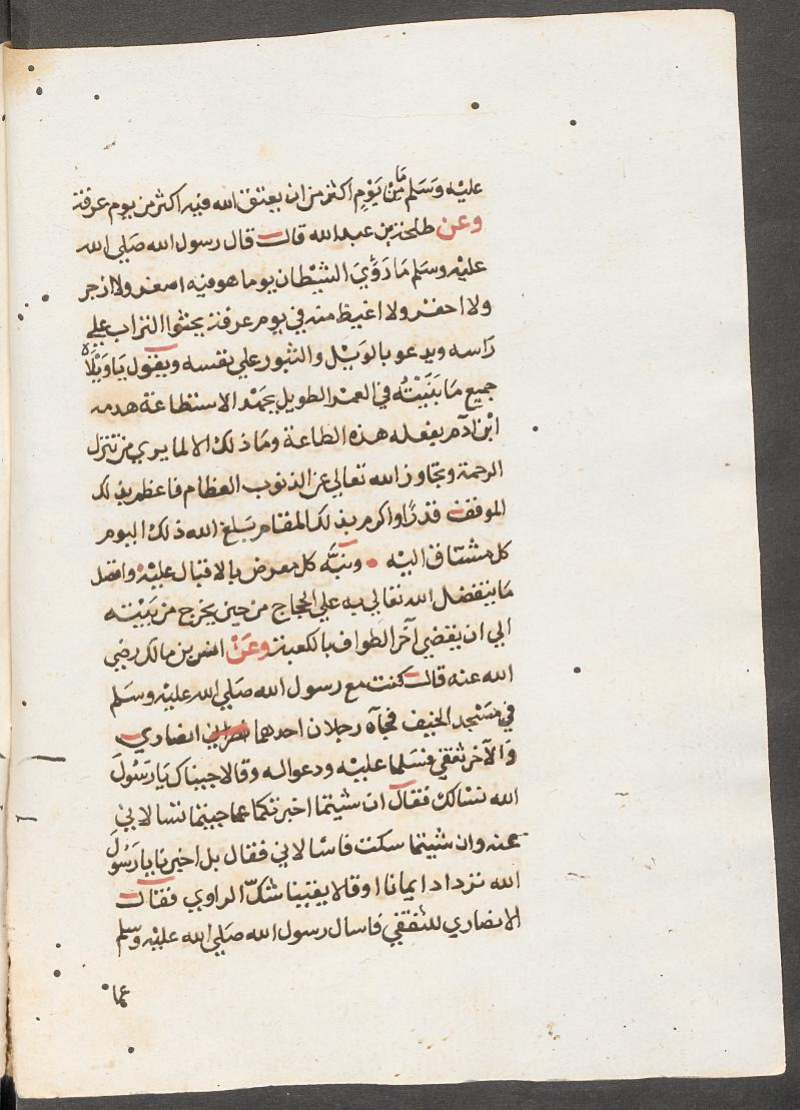 عليه وسلم ما من يوم اكثر من ان يعتق الله فيه اكثر من يوم عرفة
وعن طلحة بن عبد الله قال قال رسول الله صلي الله
عليه وسلم ما رؤي الشيطان يوما هو فيه اصغر ولا ازجر
ولا احقر ولا اغيظ منه في يوم عرفة يحثوا التراب علي
راسه ويدعو بالويل والثبور علي نفسه ويقول يا ويلاه
جميع ما بنيته في العمر الطويل بجهد الاستطاعة هدمه
ابن ادم بفعله هذه الطاعة وما ذلك الا لما يري من تنزل
الرحمة وتجاوز الله تعالي عن الذنوب العظام فاعظم بذلك
الموقف قدرا واكرم بذلك المقام يبلغ الله ذلك اليوم
كل مشتاق اليه وينبه كل معرض بالاقبال عليه وافضل
ما يتفضل الله تعالي به علي الحجاج من حين يخرج من بيته
الي ان يقضي آخر الطواف بالكعبة وعن انس بن مالك رضي
الله عنه قال كنت مع رسول الله صلي الله عليه وسلم
في مسجد الخيف فجآه رجلان احدهما انصاري
والآخر ثقفي فسلما عليه ودعوا له وقالا جيناك يا رسول
الله نسالك فقال ان شيتما اخبرتكما عما جيتما تسالاني
عنه وان شيتما سكت فاسالاني فقال بل اخبرنا يا رسول
الله نزداد ايمانا او قال يقينا شك الراوي فقال
الانصاري للثقفي فاسال رسول الله صلي الله عليه وسلم
عما